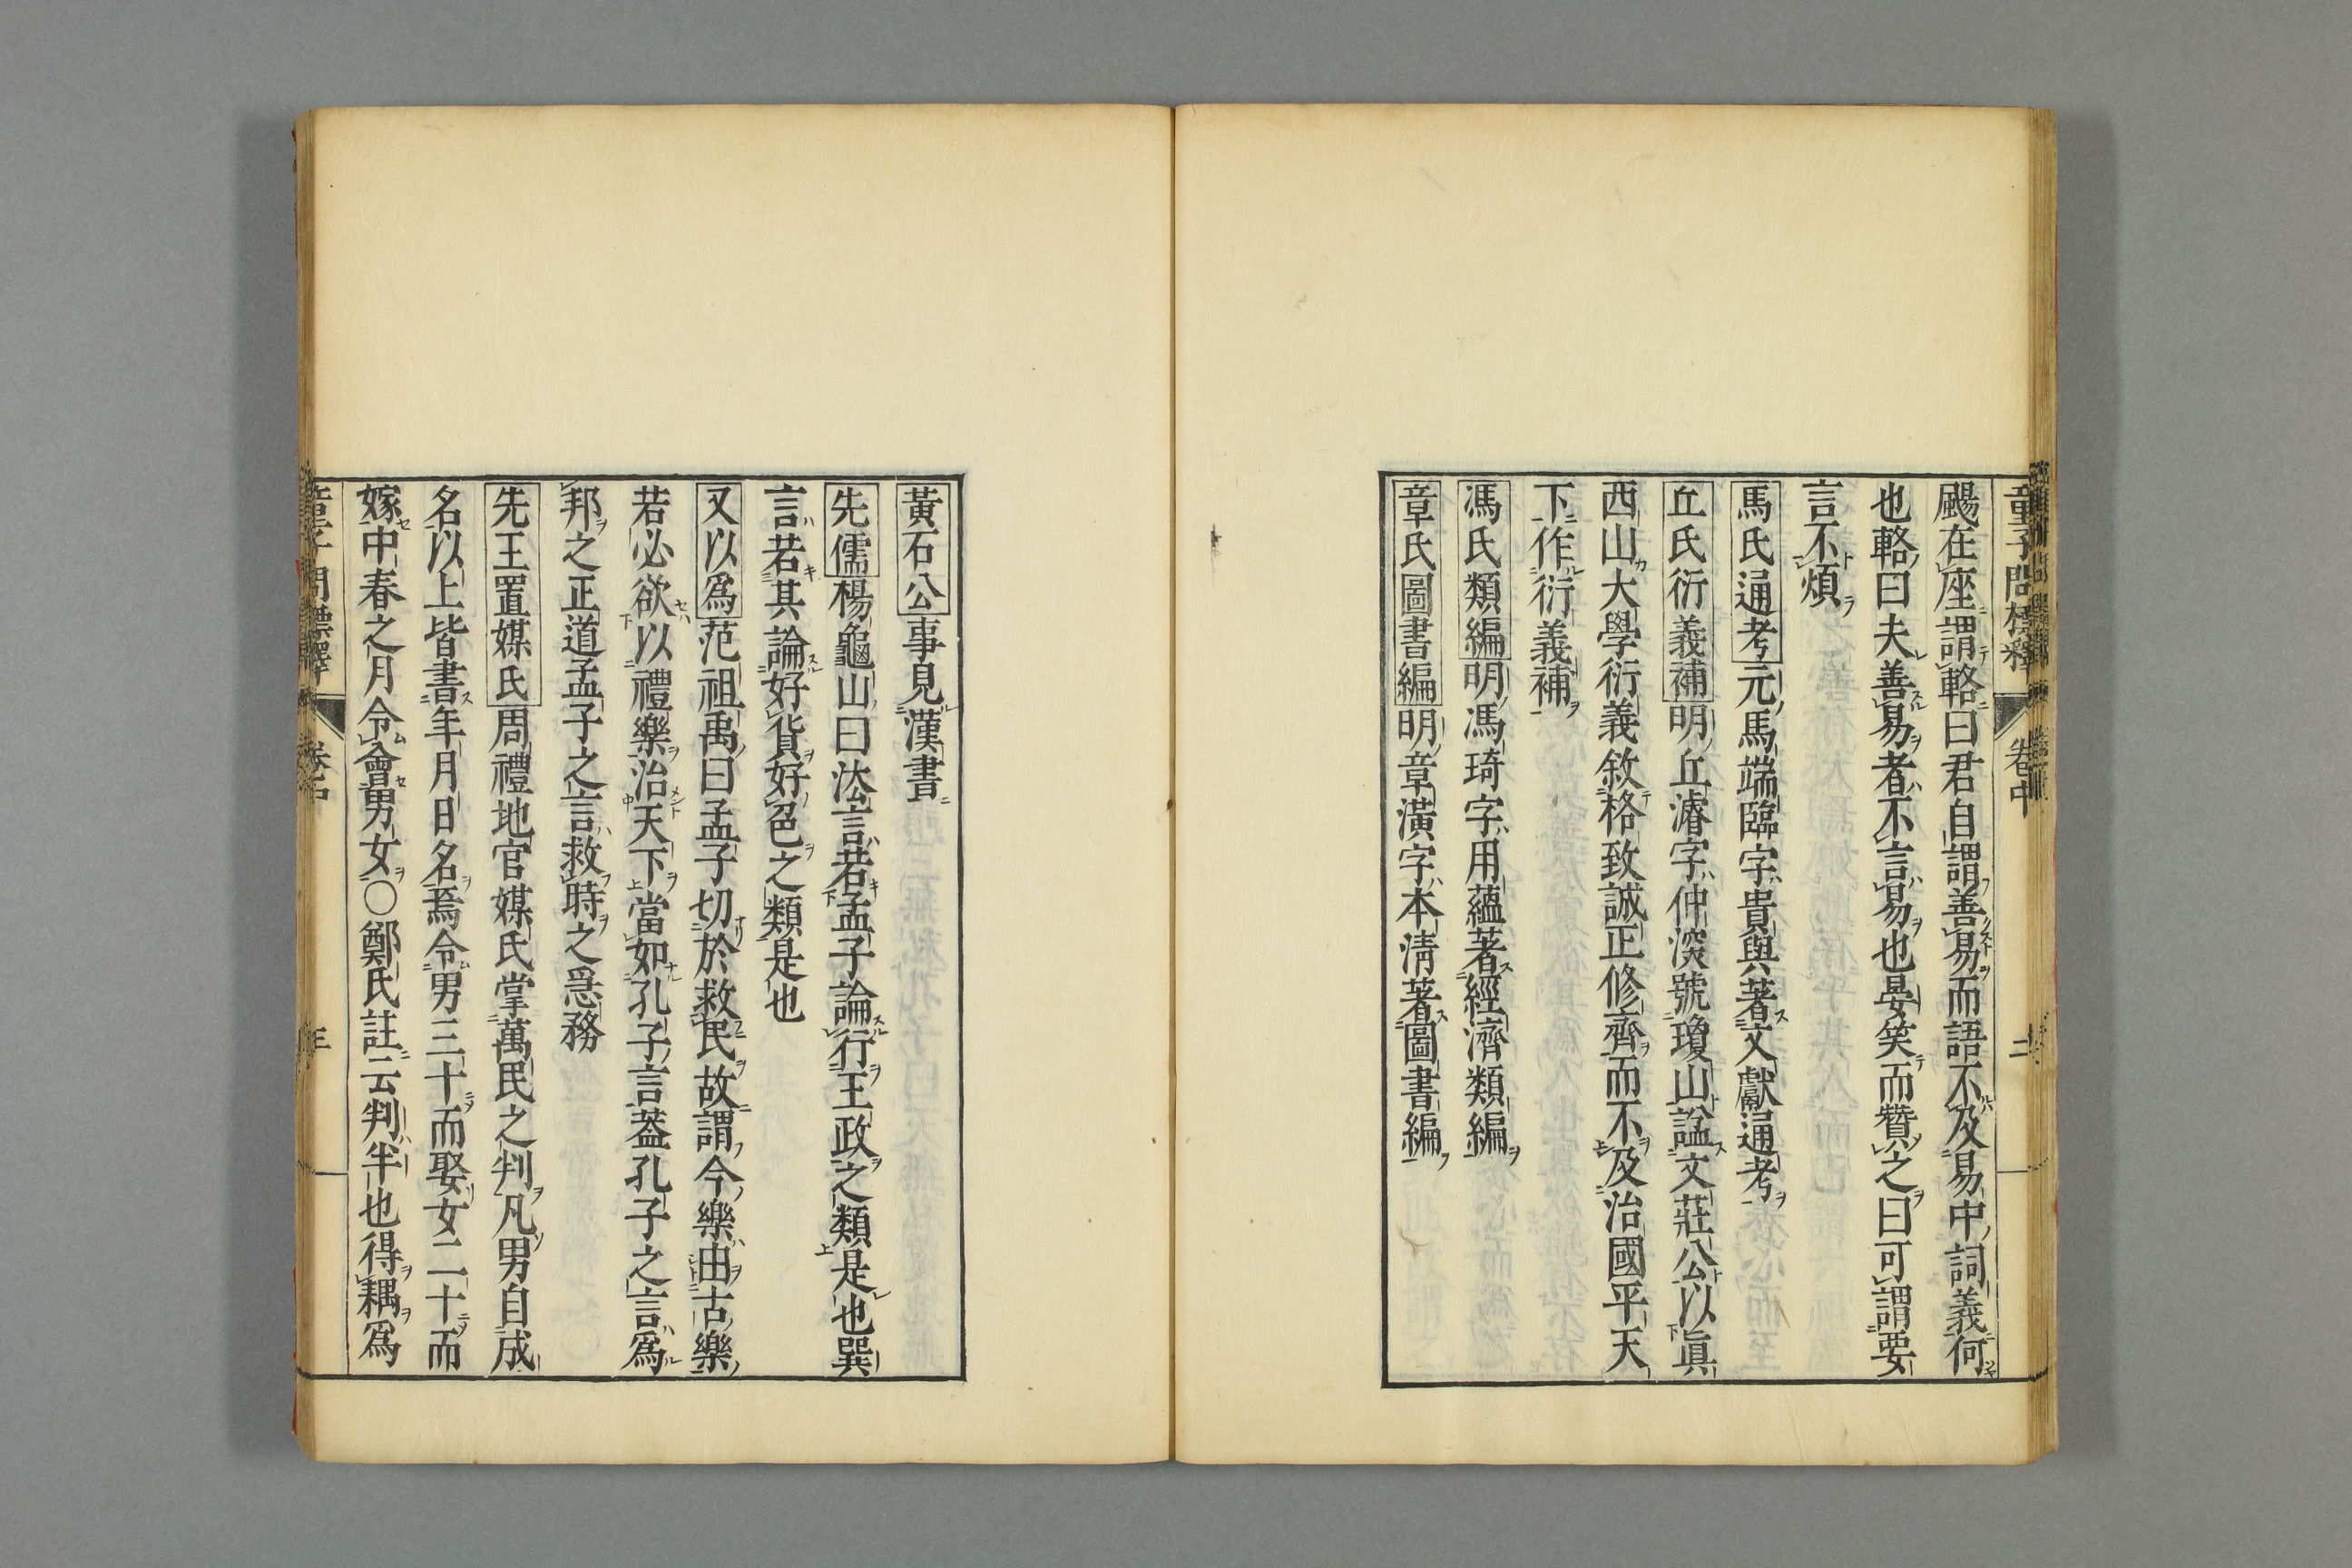 童子問標釋 卷中 二
颺在座謂輅曰君自謂善易而語不及易中詞義何
也輅曰夫善易者不言易也晏笑而贊之曰可謂要
言不煩
馬氏通考元馬端臨字貴與著文獻通考
丘氏衍義補明丘濬字仲深號瓊山謚文莊公以眞
西山大學衍義敘格致誠正修齊而不及治國平天
下作衍義補
馮氏類編明馮琦字用蘊著經濟類編
章氏圖書編明章潢字本清著圖書編
黃石公事見漢書
先儒楊龜山曰汯言若孟子論行王政之類是也巽
言若其論好貨好色之類是也
又以爲范祖禹曰孟子切於救民故謂今樂由古樂
若必欲以禮樂治天下當如孔子言葢孔子之言爲
邦之正道孟子之言救時之急務
先王置媒氏周禮地官媒氏掌萬民之判凡男自成
名以上皆書年月日名焉令男三十而娶女二十而
嫁中春之月令會男女〇鄭氏註云判半也得耦爲
童子問標釋 卷中 三